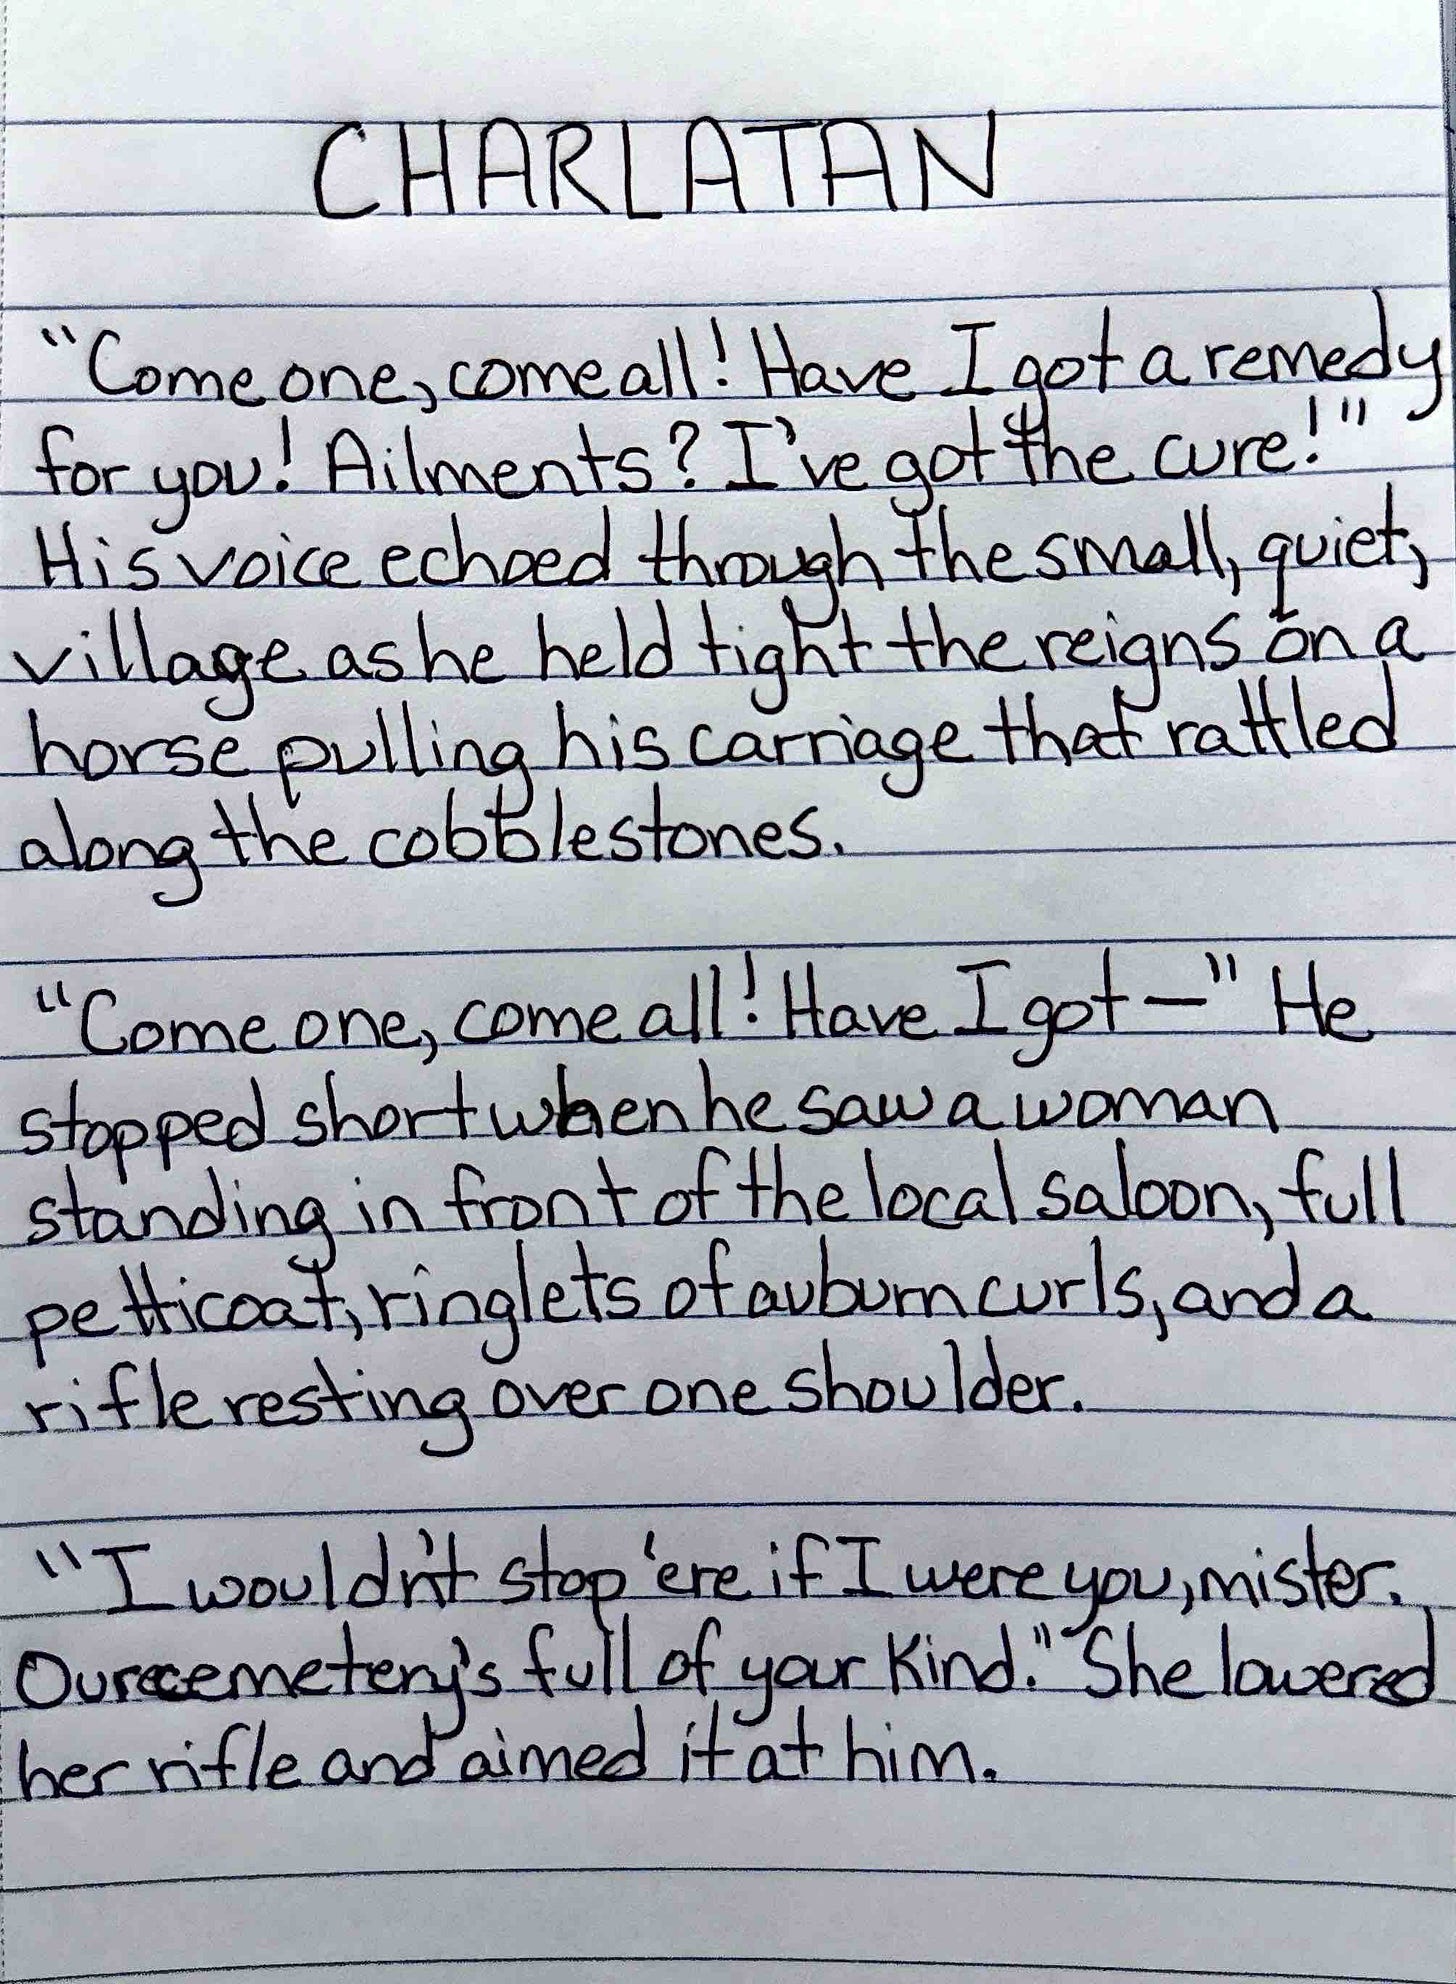 CHARLATAN
"Come one, come all! Have I got a remedy
for you! Ailments? I've got the cure!"
His voice echoed through the small, quiet,
village as he held tight the reigns on a
horse pulling his carriage that rattled
along the cobblestones.
"Come one, come all! Have I got —" He
stopped short when he saw a woman
standing in front of the local saloon, full
petticoat, ringlets of auburn curls, and a
rifle resting over one shoulder.
"I wouldn't stop 'ere if I were you, mister.
Our cemetery's full of your kind." She lowered
her rifle and aimed it at him.